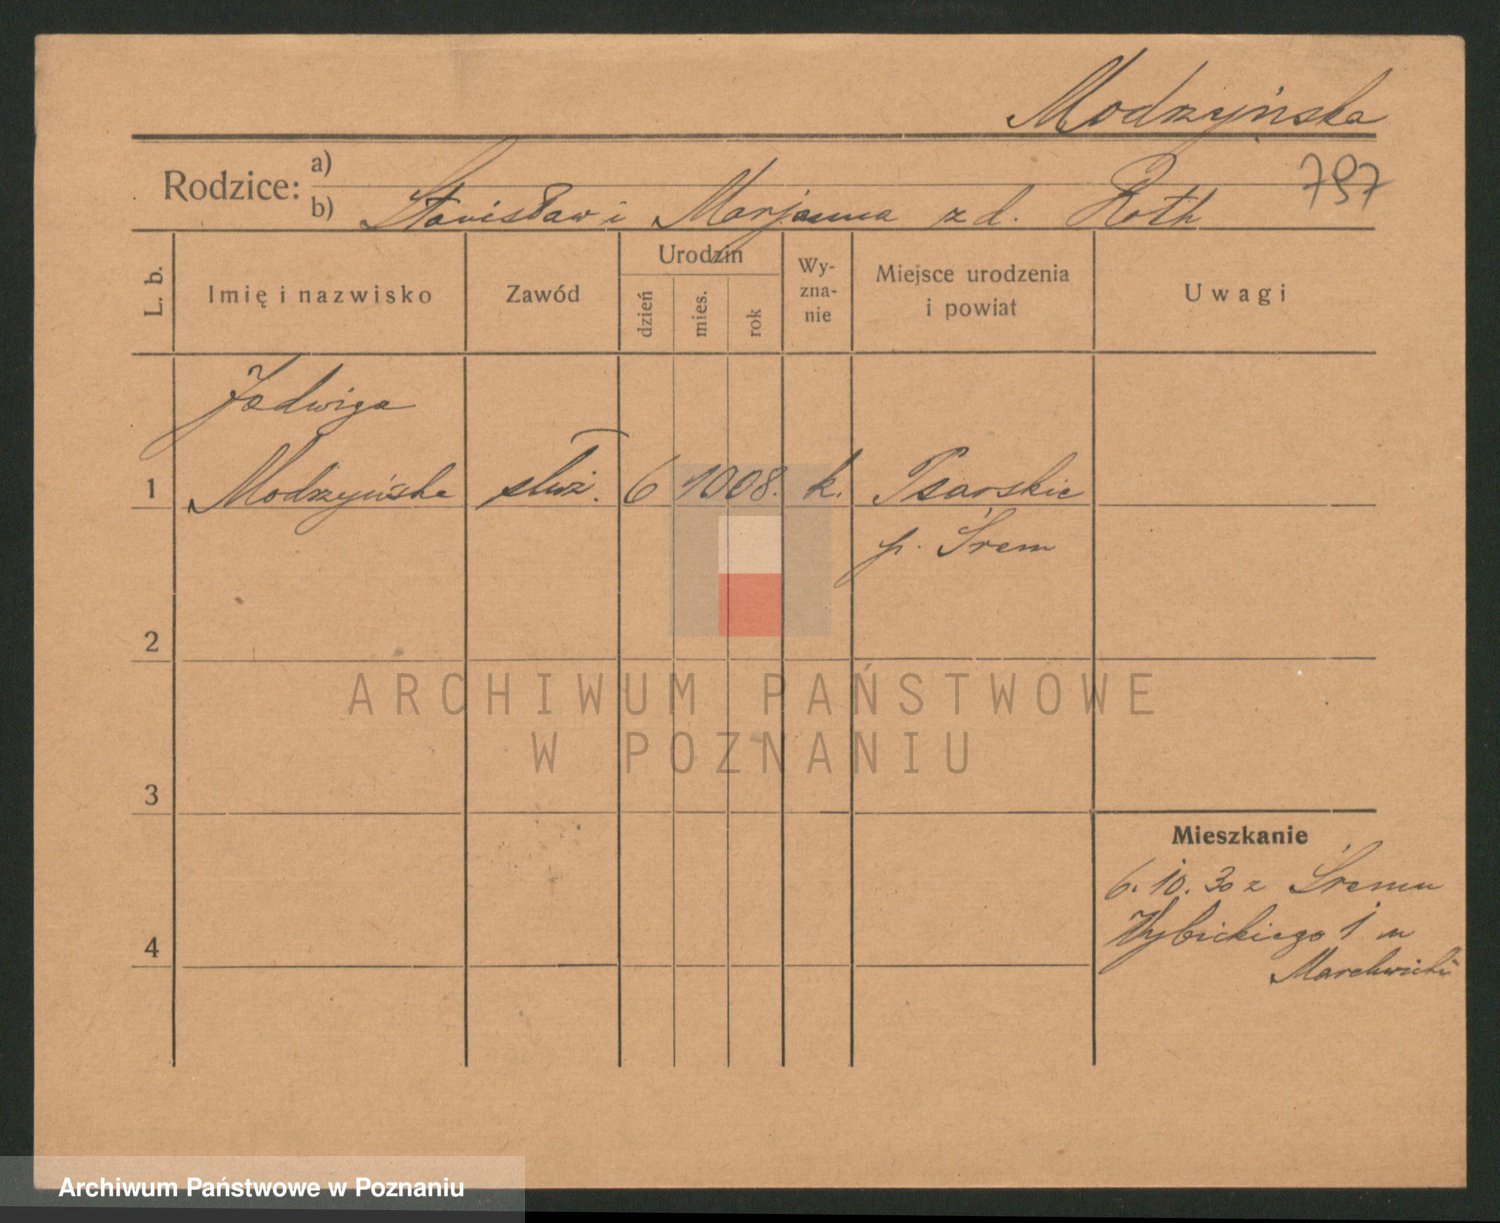 Modrzyńska
797
Rodzice: a)
b) Stanisław i Marjanna z d. Roth
L. b.
Imię i nazwisko
Zawód
Urodzin
dzień
mies.
rok
Wy-
zna-
nie
Miejsce urodzenia
i powiat
Uwagi
Jadwiga
1 Modrzyńska służ. 6 10 08. k. Psarskie
p. Śrem
2
3
4
Mieszkanie
6. 10. 30 z Śremu
Wybickiego 1 u
ARCHIWUM PAŃSTWOWE
W POZNANIU
Archiwum Państwowe w Poznaniu